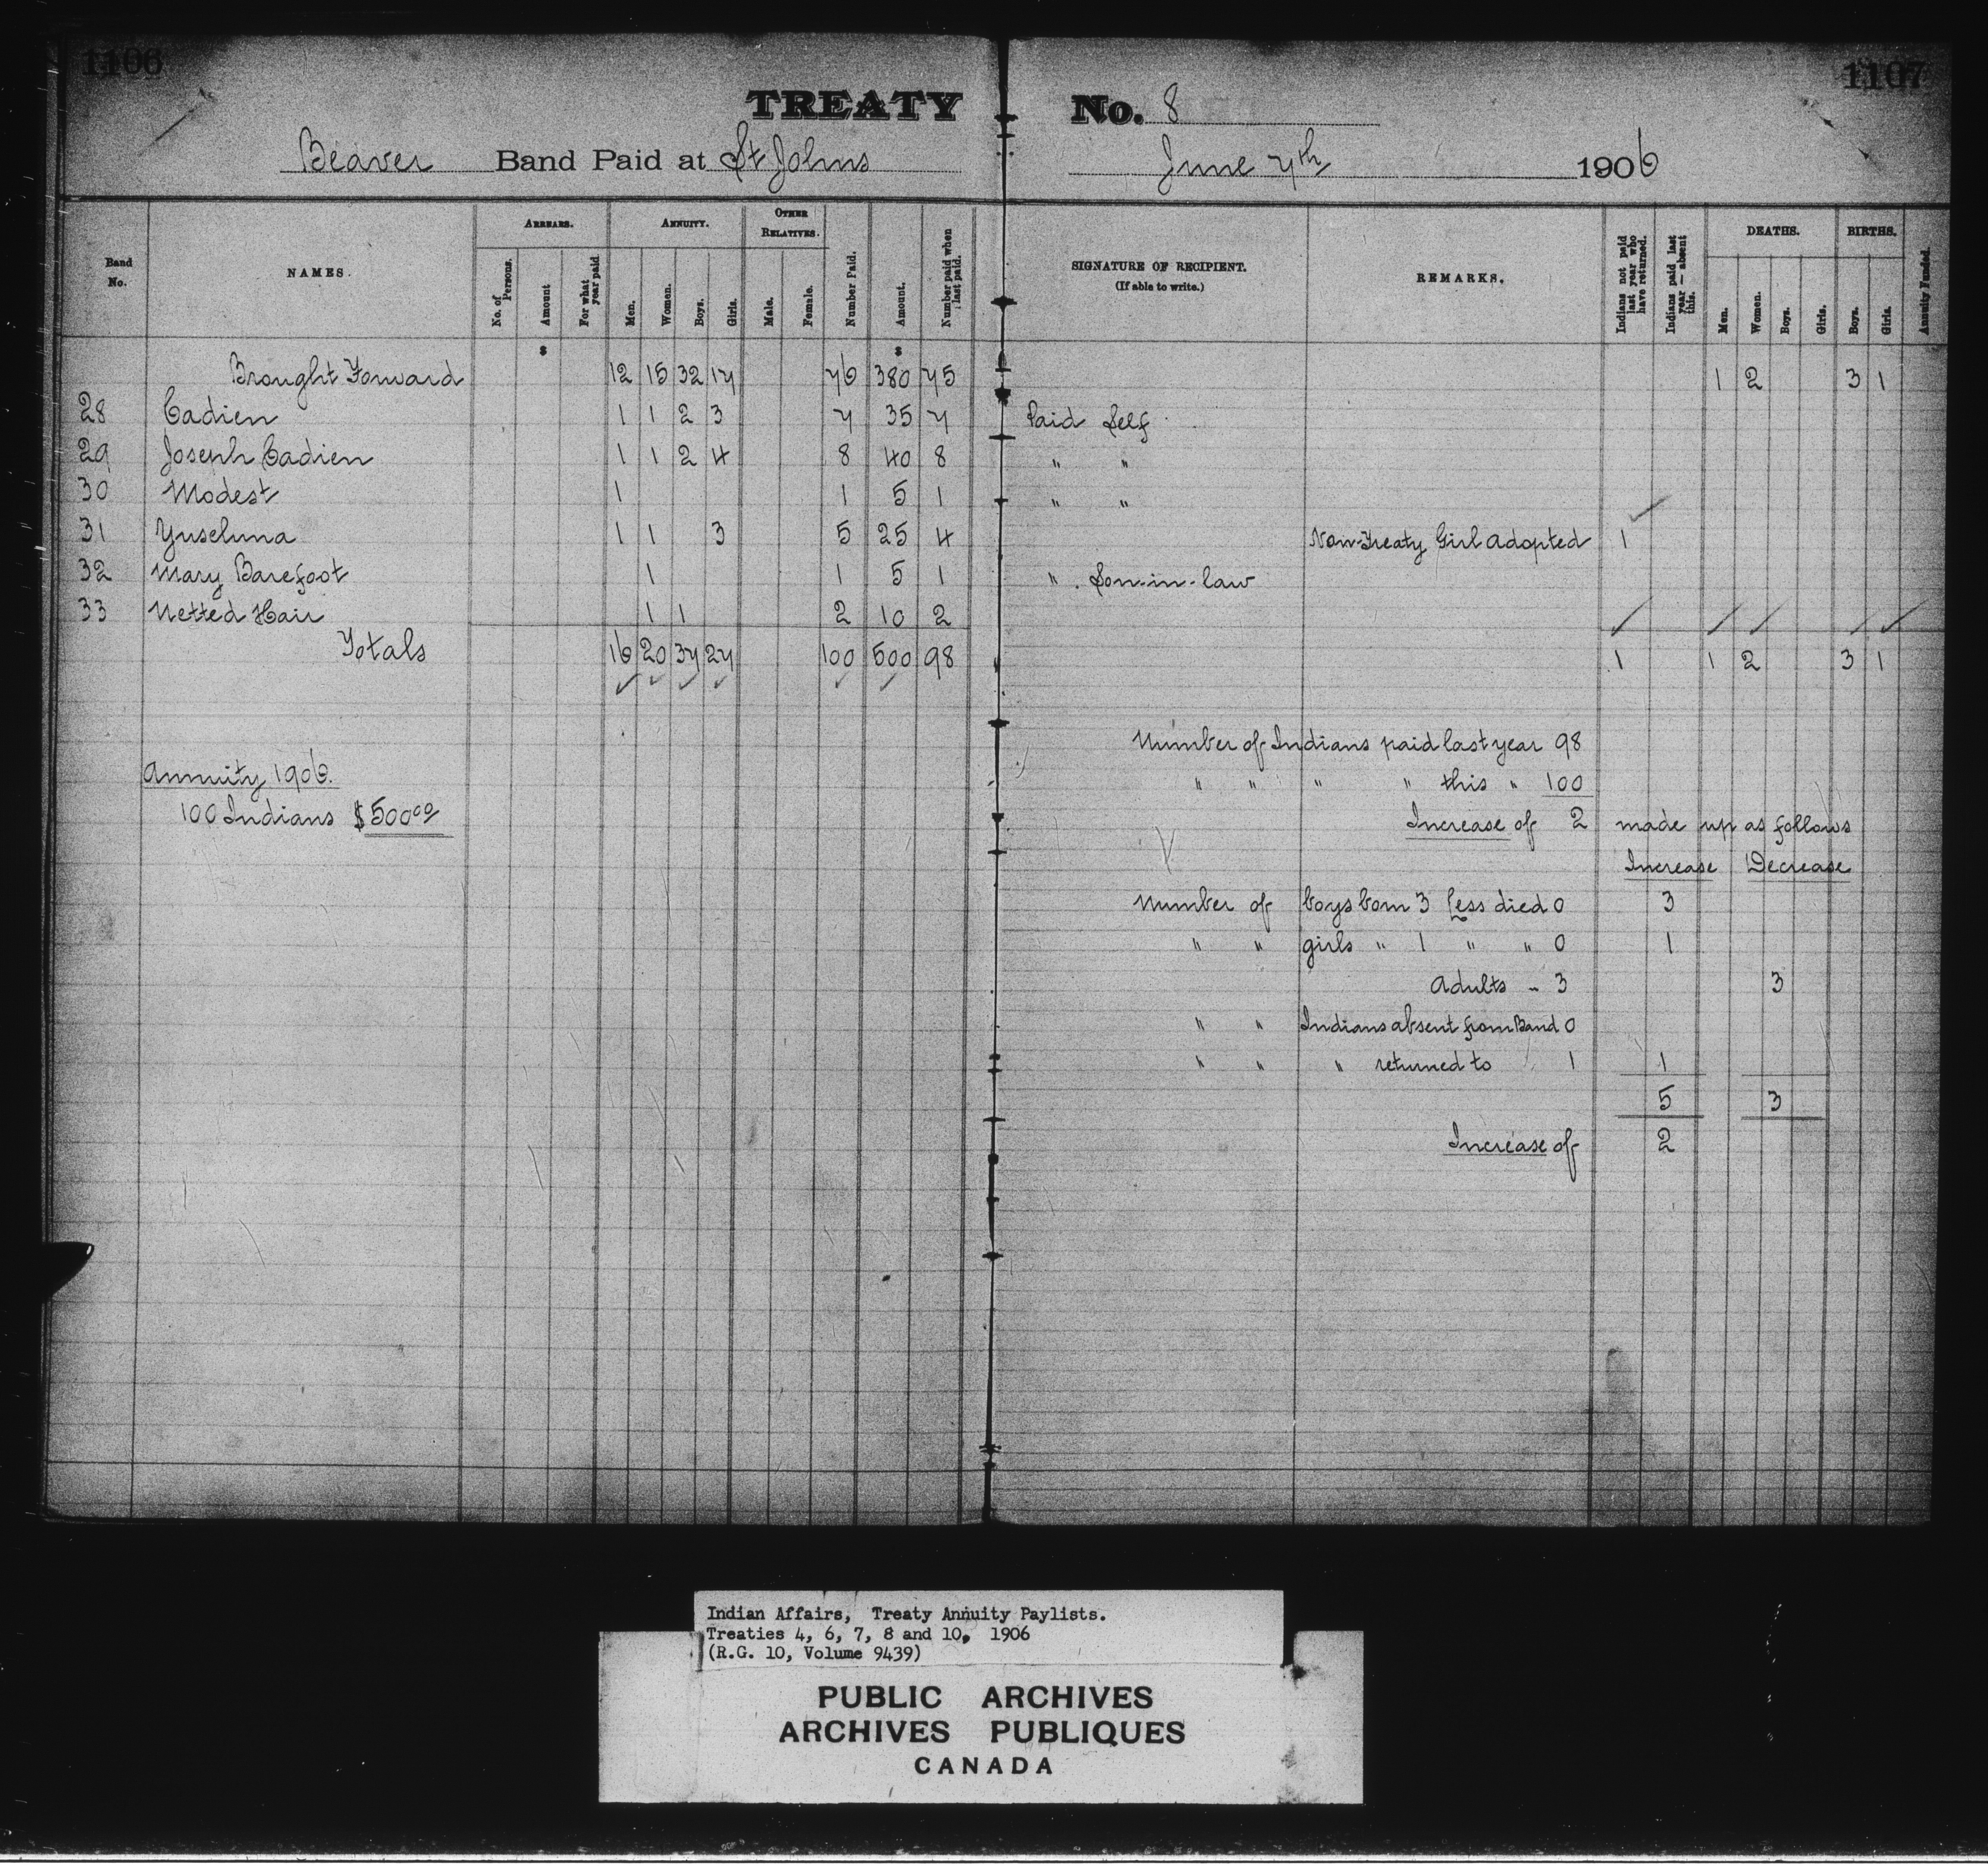 1106
1107
TREATY No. 8
Beaver Band Paid at St Johns June 7th 1906
Band No.
NAMES.
ARREARS.
No. of Persons.
Amount
For what year paid
ANNUITY.
Men.
Women.
Boys.
Girls.
OTHER RELATIVES.
Male.
Female.
Number Paid.
Amount.
Number paid when last paid.
SIGNATURE OF RECIPIENT.
(If able to write.)
REMARKS.
Indians not paid last year who have returned.
Indians paid last year — absent this.
DEATHS.
Men.
Women.
Boys.
Girls.
BIRTHS.
Boys.
Girls.
Annuity Funded.
$ $
Brought Forward 12 15 32 17 76 380 75 1 2 3 1
28 Cadien 1 1 2 3 7 35 7 Paid Self
29 Joseph Cadien 1 1 2 4 8 40 8 " "
30 Modest 1 1 5 1 " "
31 Yuseluna 1 1 3 5 25 4 Non-Treaty Girl adopted 1
32 Mary Barefoot 1 1 5 1 " Son-in-law
33 Netted Hair 1 1 2 10 2
Totals 16 20 37 27 100 500 98 1 1 2 3 1
Number of Indians paid last year 98
Annuity 1906.
" " " " this " 100
100 Indians $500.00
Increase of 2 made up as follows
Increase Decrease
Number of boys born 3 less died 0 3
" " girls " 1 " " 0 1
Adults " 3 3
" " Indians absent from Band 0
" " " returned to 1 1
5 3
Increase of 2
Indian Affairs, Treaty Annuity Paylists.
Treaties 4, 6, 7, 8 and 10, 1906
(R.G. 10, Volume 9439)
PUBLIC ARCHIVES
ARCHIVES PUBLIQUES
CANADA